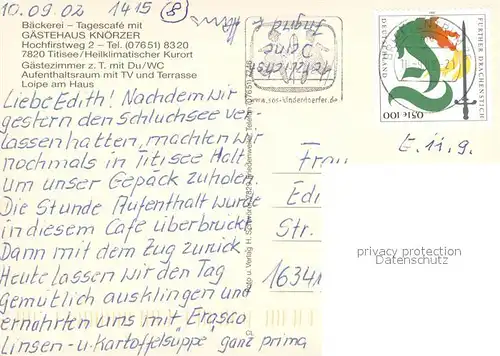 10.09.02 1415 (8)
Bäckerei – Tagescafé mit
GÄSTEHAUS KNÖRZER
Hochfirstweg 2 – Tel. (07651) 8320
7820 Titisee/Heilklimatischer Kurort
Gästezimmer z. T. mit Du/WC
Aufenthaltsraum mit TV und Terrasse
Loipe am Haus
Liebe Edith! Nachdem wir
gestern den Schluchsee ver-
lassen hatten, machten wir
nochmals in Titisee Halt
um unser Gepäck zu holen.
Die Stunde Aufenthalt wurde
in diesem Cafe überbrückt
Dann mit dem Zug zurück
Heute lassen wir den Tag
gemütlich ausklingen und
ernährten uns mit "Erasco
Linsen- u. Kartoffelsuppe" ganz prima
Herzlichst
Deine
Ingrid
www.sos-kinderdoerfer.de
DEUTSCHLAND
FURTHER DRACHENSTICH
0,51€ 100
E. 11.9.
Frau
Edi
Str.
1634
privacy protection
Datenschutz